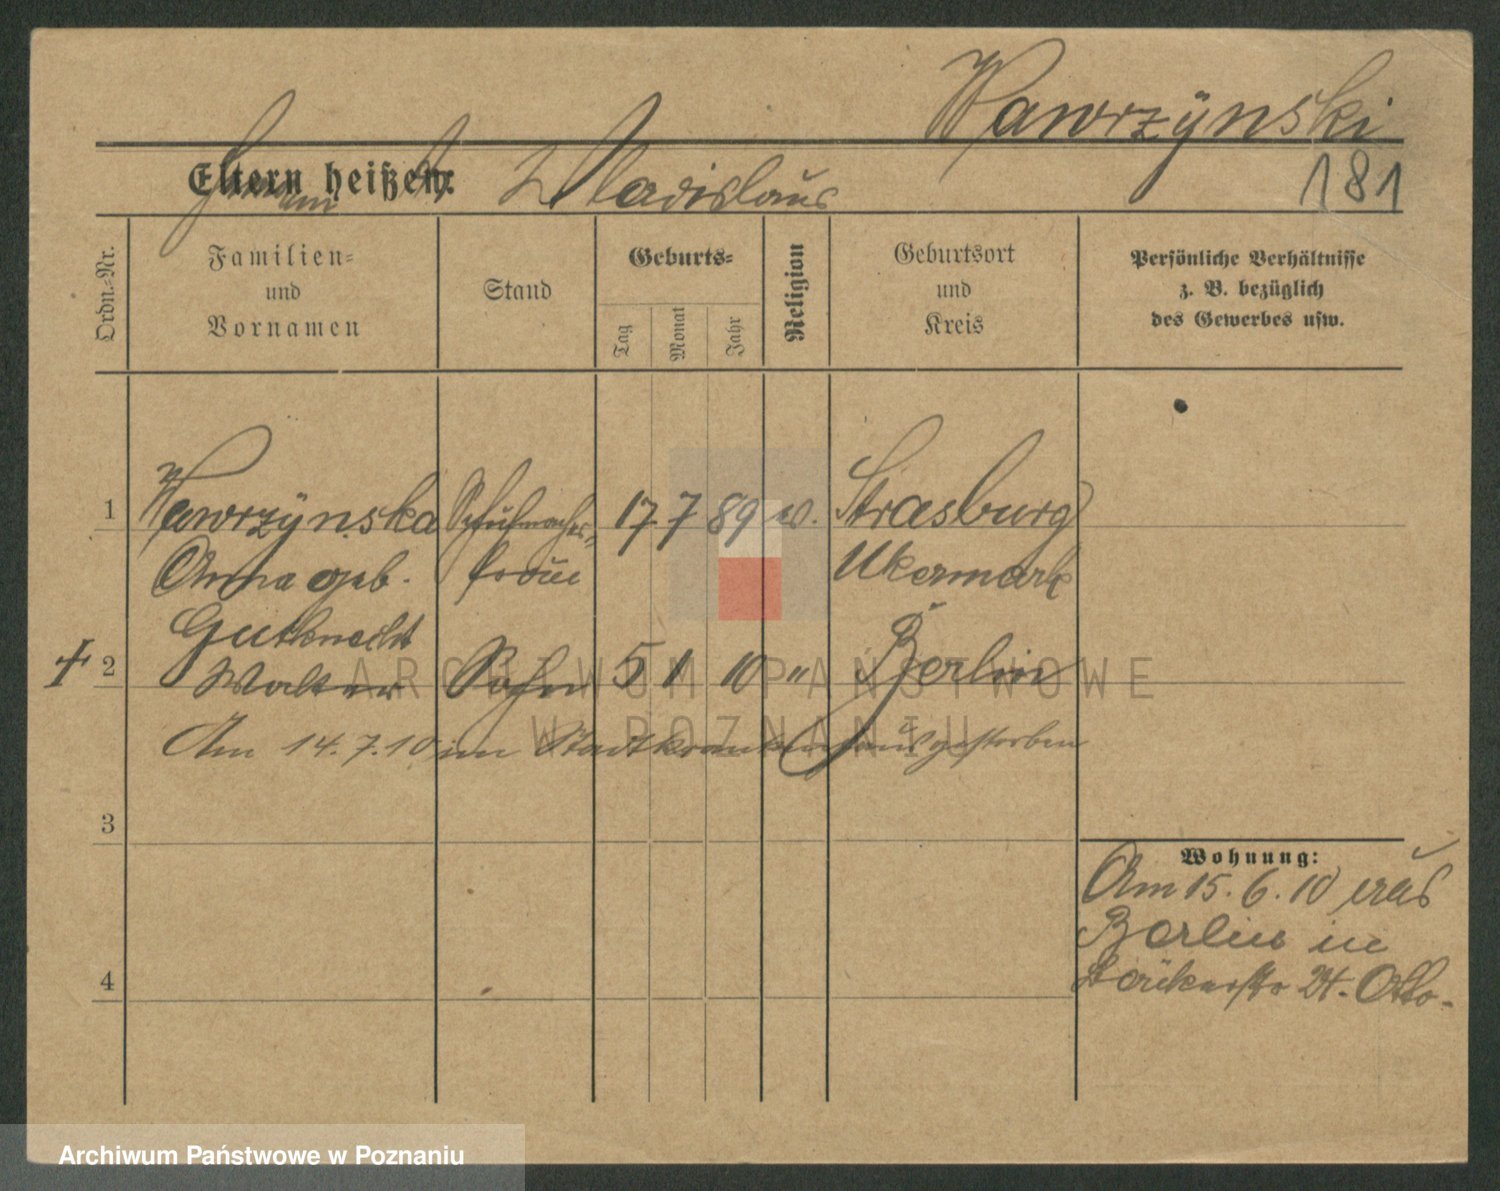 Wawrzÿnski
Eltern heißen: Wladislaus
181
Ordn.-Nr.
Familien-
und
Vornamen
Stand
Geburts-
Tag
Monat
Jahr
Religion
Geburtsort
und
Kreis
Persönliche Verhältnisse
z. B. bezüglich
des Gewerbes usw.
1 Wawrzÿnska Schuhmacher- 17 7 89 ev. Strasburg
Anna geb. frau Ukermark
Gutknecht
+ 2 Walter Sohn 5 1 10 " Berlin
Am 14.7.10 im Stadtkrankenhaus gestorben
3
Wohnung:
Am 15.6.10 aus
Berlin in
4
24. Otto-
ARCHIWUM PAŃSTWOWE
W POZNANIU
Archiwum Państwowe w Poznaniu